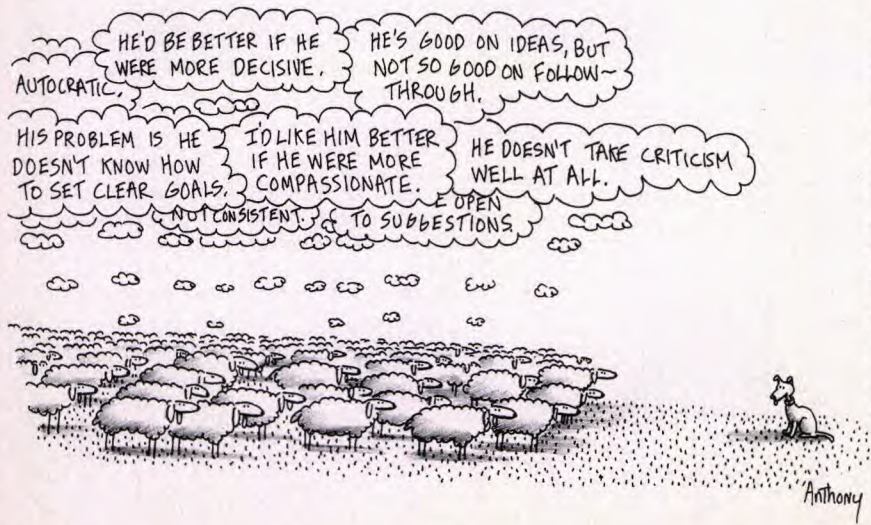 AUTOCRATIC.
HE'D BE BETTER IF HE
WERE MORE DECISIVE.
HE'S GOOD ON IDEAS, BUT
NOT SO GOOD ON FOLLOW~
THROUGH.
HIS PROBLEM IS HE
DOESN'T KNOW HOW
TO SET CLEAR GOALS.
I'D LIKE HIM BETTER
IF HE WERE MORE
COMPASSIONATE.
HE DOESN'T TAKE CRITICISM
WELL AT ALL.
NOT CONSISTENT.
E OPEN
TO SUGGESTIONS.
Anthony